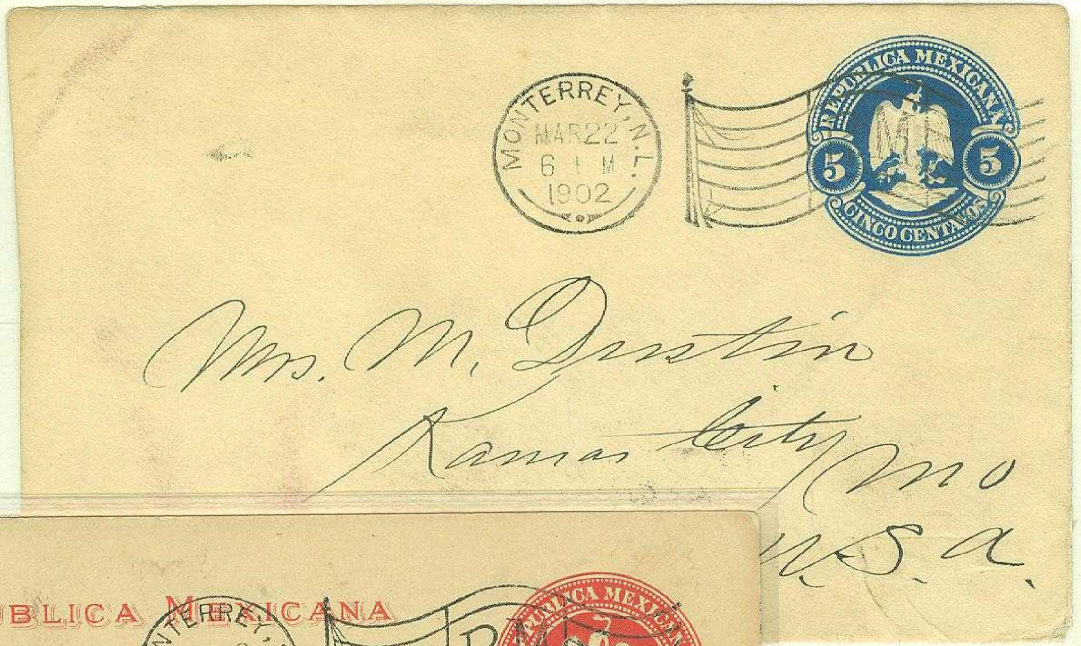 MONTERREY, N.L.
MAR 22
6 M
1902
REPUBLICA MEXICANA
5 5
CINCO CENTAVOS
Mrs. M. Dustin
Kansas City Mo
U.S.A.
UBLICA MEXICANA
NTERREY,
REPUBLICA MEXICANA